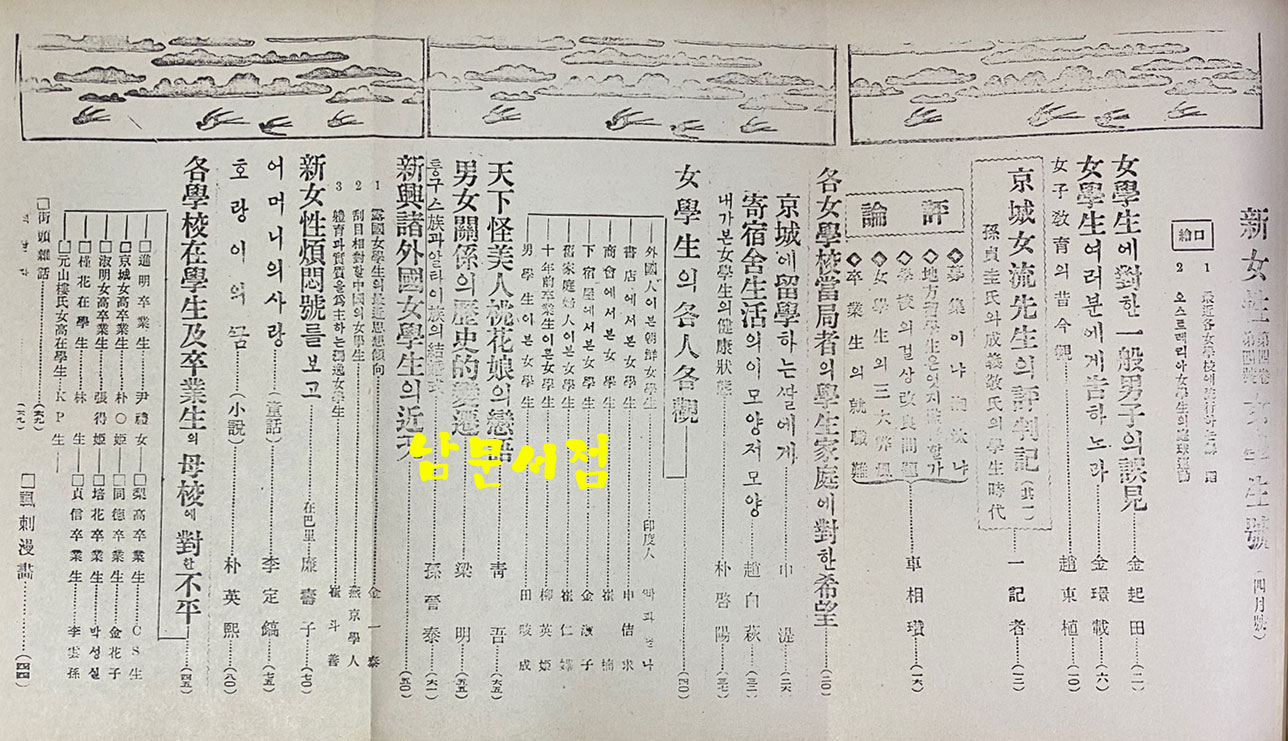 新女性 第四卷 第四號 女學生號 (四月號)
口繪
1 最近各女學校에
2 오스트랠리아女學生의
女學生에對한一般男子의誤見 金起田 (二)
女學生여러분에게告하노라 金環載 (六)
女子敎育의昔今觀 趙東植 (一〇)
京城女流先生의評判記 (其一) 一記者 (一二)
孫貞圭氏와成義敬氏의學生時代
評論
◇募集이냐
◇地方留學生은엇지
◇學校의걸상改良問題
◇女學生의三大
◇卒業生의就職難
車相瓚 (一六)
各女學校當局者의學生家庭에對한希望 (二〇)
京城에留學하는쌀에게 申湜 (二六)
寄宿舍生活의이모양저모양 趙白萩 (三二)
내가본女學生의健康狀態 朴啓陽 (三七)
女學生의各人各觀 (四〇)
外國人이본朝鮮女學生 印度人
書店에서본女學生 申佶求
商會에서본女學生 崔楠
下宿屋에서본女學生 金淑子
舊家庭婦人이본女學生 崔仁
十年前卒業生이본女學生 柳英姬
男學生이본女學生 田畯成
天下怪美人桃花娘의戀語 靑吾 (六五)
男女關係의歷史的變遷 梁明 (五五)
퉁구스族과알타이族의結婚式 孫晉泰 (六一)
新興諸外國女學生의近況 (五〇)
1 露國女學生의最近思想傾向 金一泰
2 刮目相對할中國의女學生 燕京學人
3 體育과實質을爲主하는獨逸女學生 崔斗善
新女性煩悶號를보고 在巴里 廉壽子 (七〇)
어머니의사랑 (童話) 李定鎬 (七五)
호랑이의꿈 (小說) 朴英熙 (八〇)
各學校在學生及卒業生의母校에對한不平 (四五)
□進明卒業生 尹禮女
□京城女高卒業生 朴〇姬
□淑明女高卒業生 張得姬
□槿花在學生 林生
□元山樓氏女高在學生 KP生
□梨高卒業生 CS生
□同德卒業生 金花子
□培花卒業生 박성실
□貞信卒業生 李雲孫
□街頭雜話 (六九)
□諷刺漫畵 (四四)
남문서점